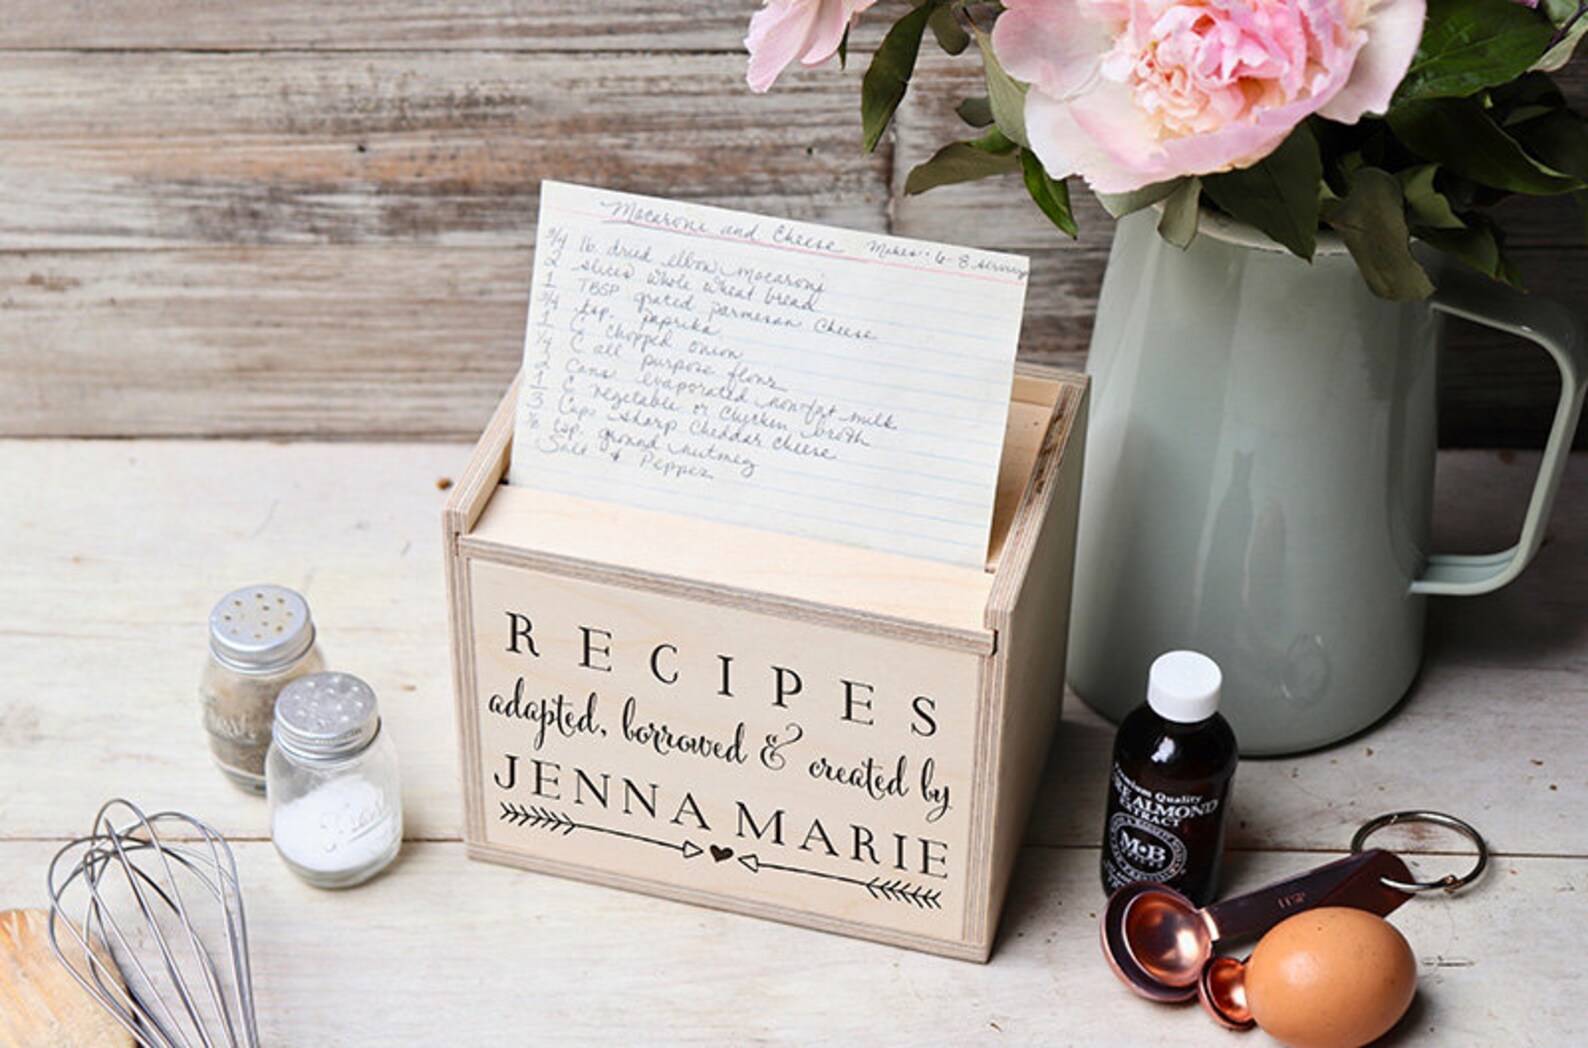 Macaroni and Cheese Makes: 6-8 servings
3/4 lb. dried elbow macaroni
2 slices whole wheat bread
1 TBSP grated parmesan cheese
3/4 tsp. paprika
1 C chopped onion
1/4 C all purpose flour
2 cans evaporated non-fat milk
1 C vegetable or chicken broth
3 Cups sharp cheddar cheese
tsp. ground nutmeg
Salt & Pepper
RECIPES
adapted, borrowed & created by
JENNA MARIE
Premium Quality
ALMOND
EXTRACT
M•B